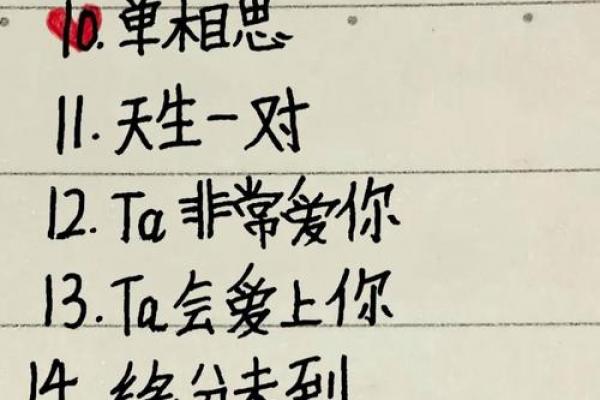 10.单相思
11.天生一对
12.Ta非常爱你
13.Ta会爱上你
14.缘分未到